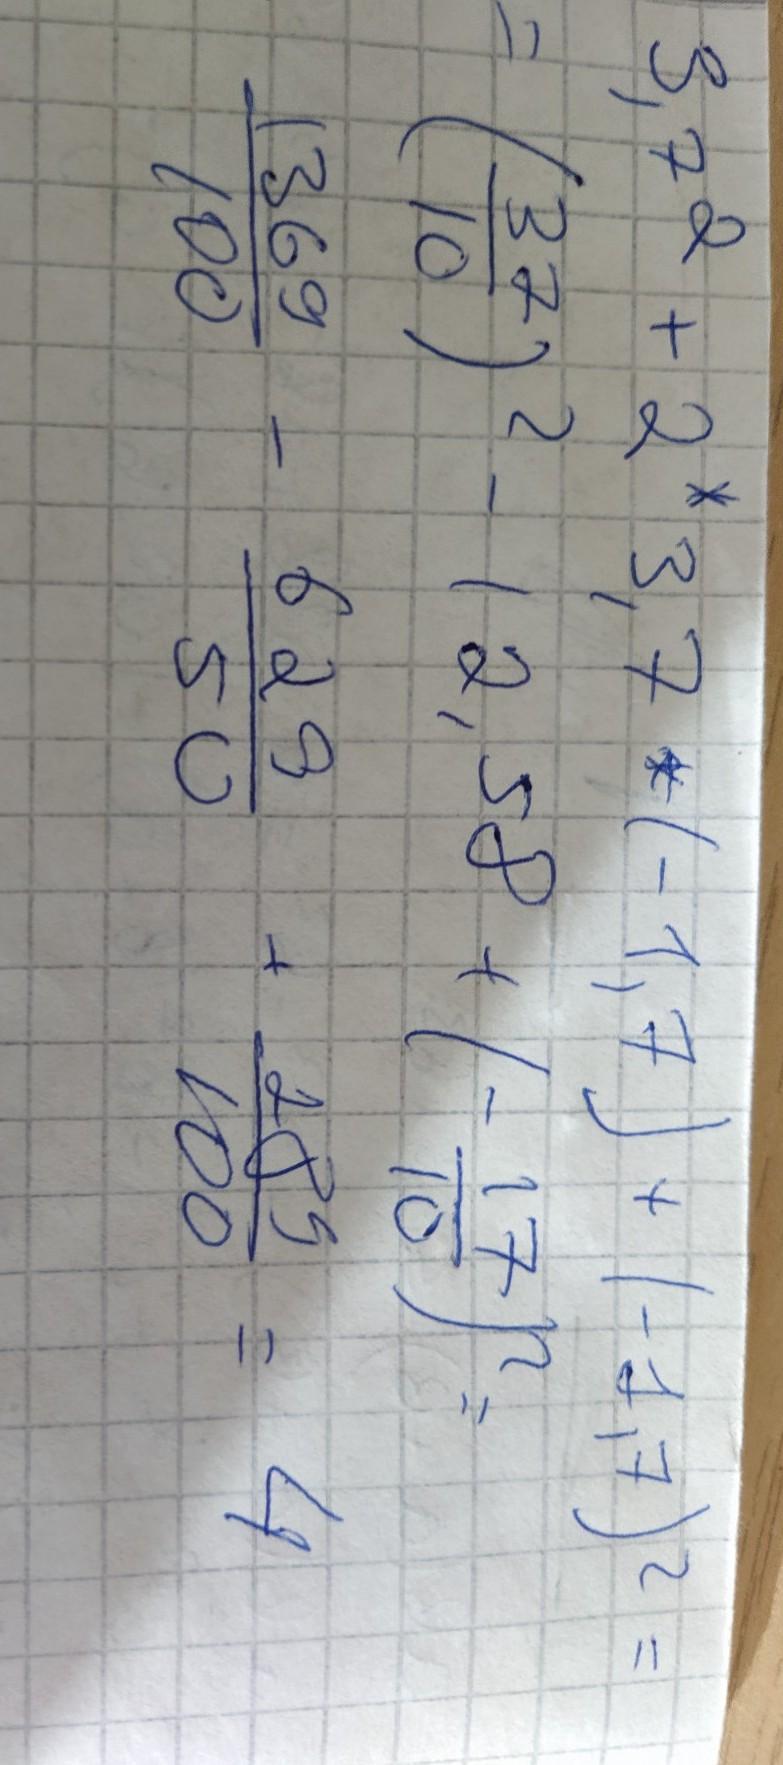 3,7² + 2*3,7*(-1,7)+(-1,7)² =
= (37/10)² - 12,58 + (-17/10)² =
1369/100 - 629/50 + 289/100 = 4